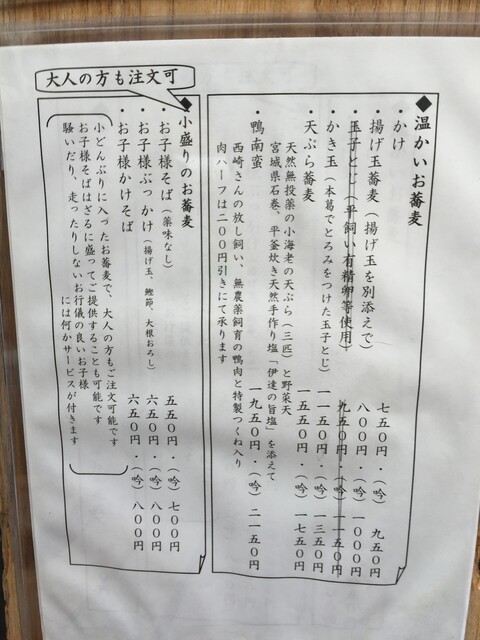 ◆温かいお蕎麦
・かけ 七五〇円・(吟) 九五〇円
・揚げ玉蕎麦(揚げ玉を別添えで) 八〇〇円・(吟) 一〇〇〇円
・玉子とじ(平飼い有精卵等使用) 九五〇円・(吟) 一一五〇円
・かき玉(本葛でとろみをつけた玉子とじ) 一一五〇円・(吟) 一三五〇円
・天ぷら蕎麦 一五五〇円・(吟) 一七五〇円
天然無投薬の小海老の天ぷら(三匹)と野菜天
宮城県石巻、平釜炊き天然手作り塩「伊達の旨塩」を添えて
・鴨南蛮 一九五〇円・(吟) 二一五〇円
西崎さんの放し飼い、無農薬飼育の鴨肉と特製つくね入り
肉ハーフは二〇〇円引きにて承ります
大人の方も注文可
◆小盛りのお蕎麦
・お子様そば(薬味なし) 五五〇円・(吟) 七〇〇円
・お子様ぶっかけ(揚げ玉、鰹節、大根おろし) 六五〇円・(吟) 八〇〇円
・お子様かけそば 六五〇円・(吟) 八〇〇円
小どんぶりに入ったお蕎麦で、大人の方もご注文可能です
お子様そばはざるに盛ってご提供することも可能です
騒いだり、走ったりしないお行儀の良いお子様
には何かサービスが付きます